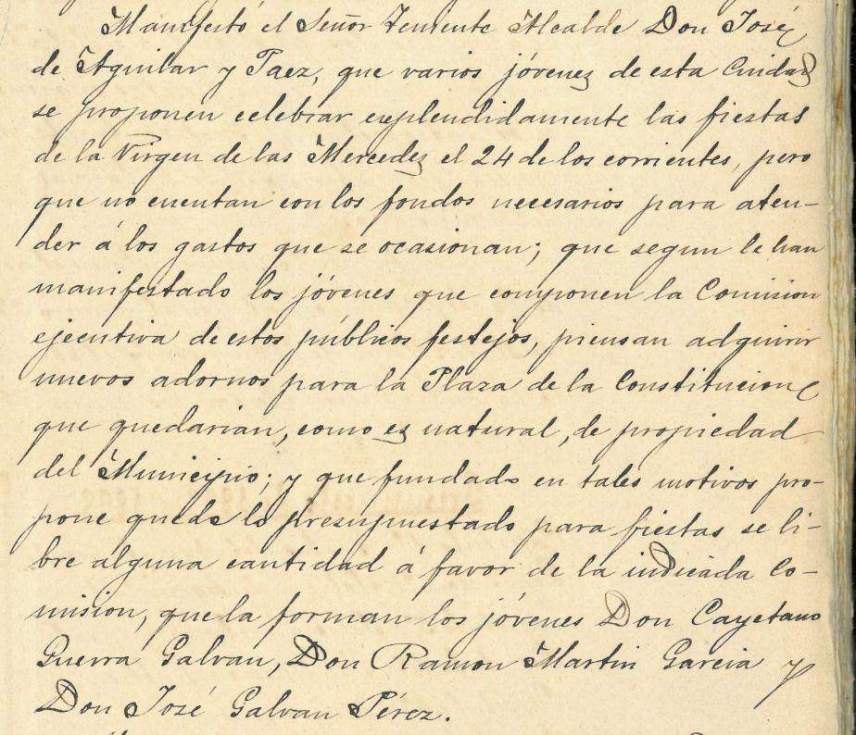 Manifestó el Señor Teniente Alcalde Don José
de Aguilar y Paez, que varios jóvenez de esta Ciudad
se proponen celebrar explendidamente las fiestas
de la Virgen de las Mercedez el 24 de los corrientes, pero
que no cuentan con los fondos necesarios para aten-
der á los gastos que se ocasionan; que segun le han
manifestado los jóvenes que componen la Comision
ejecutiva de estos públicos festejos, piensan adquirir
nuevos adornos para la Plaza de la Constitucion
que quedarian, como es natural, de propiedad
del Municipio; y que fundado en tales motivos pro-
pone que de lo presupuestado para fiestas se li-
bre alguna cantidad á favor de la indicada Co-
mision, que la forman los jóvenes Don Cayetano
Guerra Galvan, Don Ramon Martin Garcia y
Don José Galvan Pérez.